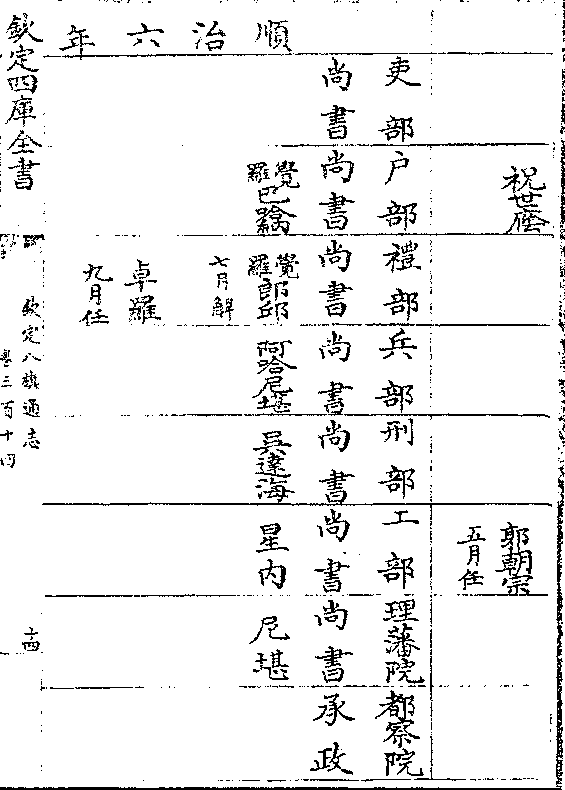 祝世廕
郭朝宗
五月任
順治六年
吏部
尚書
户部
尚書
覺羅巴
禮部
尚書
覺羅郎邱
七月解
卓羅
九月任
兵部
尚書
阿哈尼堪
刑部
尚書
吳達海
工部
尚書
星内
理藩院
尚書
尼堪
都察院
承政
欽定四庫全書
欽定八旗通志
卷三百十四
十四